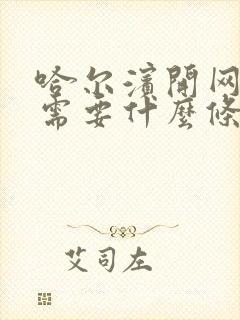 哈尔濱開网
需要什麼條
艾司左